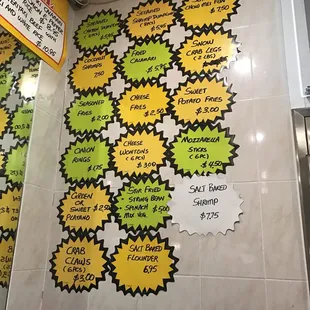 & WINE
RICE
Steamed
Shrimp Dumpling
(6pc)
Chow Mei Fun
Coconut
Shrimp
7.50
Fried
Calamari
Snow
Crab Legs
(2 LBS)
Seasoned
Fries
2.00
Cheese
Fries
$2.50
Sweet
Potato Fries
$3.00
Onion
Rings
1.75
Cheese
Wontons
(6pcs)
$3.00
Mozzarella
Sticks
(6pc)
$4.50
Green
or
Sweet $2.50
Platano
Stir Fried
• String Bean
• Spinach
Mix Veg
$5.00
Salt Baked
Shrimp
$7.75
Crab
Claws
(6pcs)
$3.00
Salt Baked
Flounder
6.95